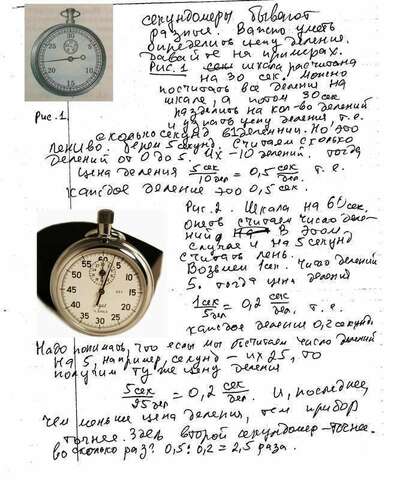 секундомеры бывают
разные. Важно уметь
определить цену деления.
Давайте на примерах.
Рис. 1 шкала расчитана
на 30 сек. Можно
посчитать все деления на
шкале, а потом 30 сек
разделить на кол-во делений
и узнать цену деления, т.е.
Рис. 1
сколько секунд в 1 делении. Но это
лениво. Берем 5 секунд. Считаем сколько
делений от 0 до 5. Их - 10 делений. Тогда
цена деления 5 сек / 10 дел = 0,5 сек / дел. т.е.
каждое деление это 0,5 сек.
Рис. 2. Шкала на 60 сек.
опять считаем число деле-
ний. В этом
случае и на 5 секунд
считать лень.
Возьмем 1 сек. Число делений
5. тогда цена деления
1 сек / 5 дел = 0,2 сек / дел. т.е.
каждое деление 0,2 секунд.
Надо понимать, что если мы посчитаем число делений
на 5, например, секунд - их 25, то
получим ту же цену деления
5 сек / 25 дел = 0,2 сек / дел. И, последнее,
чем меньше цена деления, тем прибор
точнее. Здесь второй секундомер - точнее.
во сколько раз? 0,5 : 0,2 = 2,5 раза.
60
5
10
15
20
25
30
35
40
45
50
55